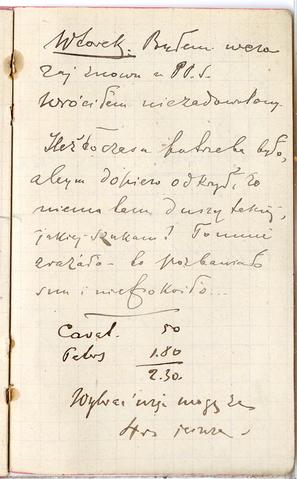 Wtorek. Byłem wczo
raj znowu u PP. S.
Wróciłem niezadowolony.
Ileż to czasu potrzeba było,
abym dopiero odkrył, że
niema tam duszy takiej,
jakiej szukam! To mnie
zrażało - to pozbawiało
snu i niepokoiło...
Caval. 50
1.80
2.30.
mogę za